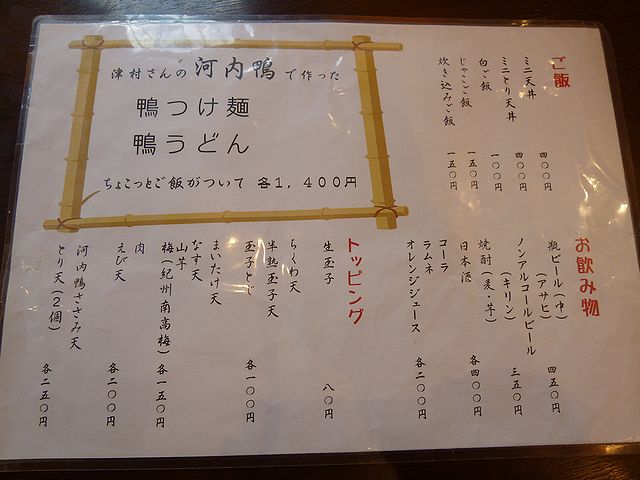 津村さんの河内鴨で作った
鴨つけ麺
鴨うどん
ちょこっとご飯がついて 各1,400円
ご飯
ミニ天丼 四〇〇円
ミニとり天丼 四〇〇円
白ご飯 一〇〇円
じゃこご飯 一五〇円
炊き込みご飯 一五〇円
お飲み物
瓶ビール(中)
(アサヒ) 四五〇円
ノンアルコールビール
(キリン) 三五〇円
焼酎(麦・芋)
日本酒 各四〇〇円
コーラ
ラムネ
オレンジジュース 各二〇〇円
トッピング
生玉子 八〇円
ちくわ天
半熟玉子天
玉子とじ 各一〇〇円
まいたけ天
なす天
山芋
梅(紀州南高梅) 各一五〇円
肉
えび天 各二〇〇円
河内鴨ささみ天
とり天(2個) 各二五〇円